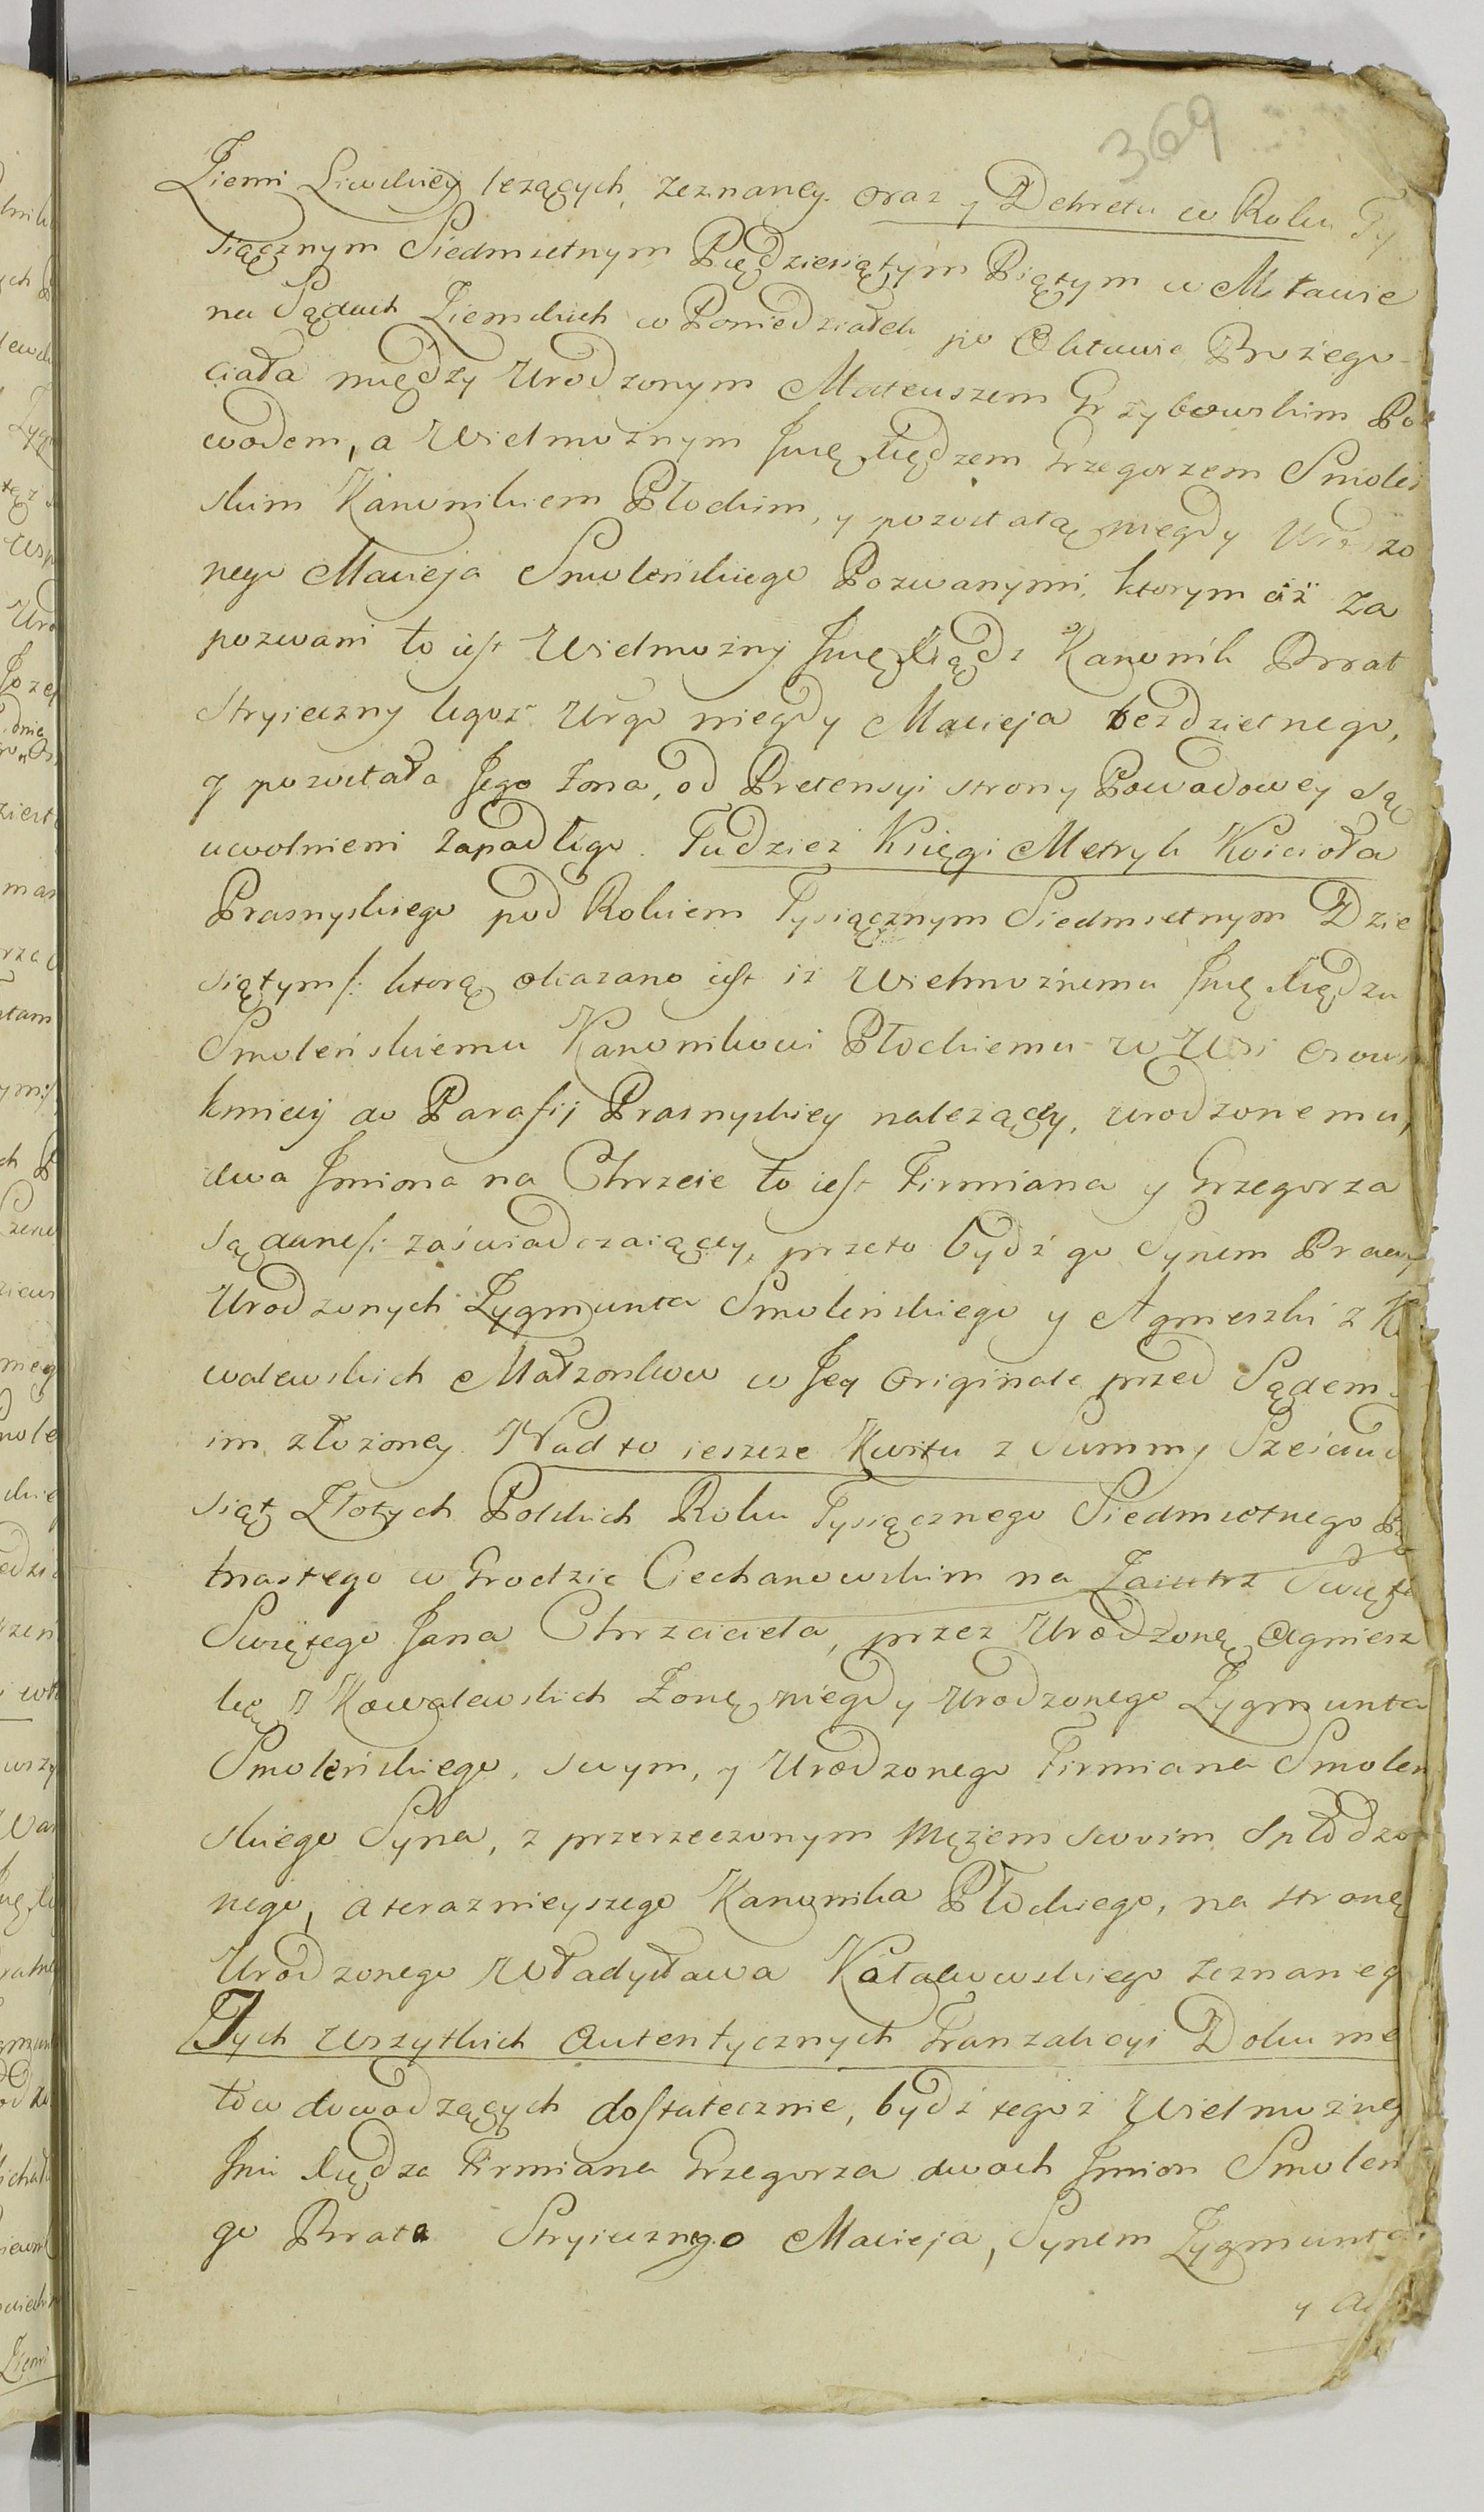 369
Ziemi Liwskiey leżących, zeznaney. oraz y Dekretu w Roku Ty
siącznym Siedmsetnym Pięćdziesiątym Piątym w Mławie
na Sądach Ziemskich w Poniedziałek po Oktawie Bożego
ciała między Urodzonym Mateuszem Grzybowskim Po
wodem, a Wielmożnym Jmę Xiędzem Grzegorzem Smoleń
skim Kanonikiem Płockim, y pozostałą niegdy Urodzo
nego Macieja Smoleńskiego Pozwanymi, ktorym ciż za
pozwani to iest Wielmożny Jmę Xiądz Kanonik Brat
Stryieczny tegoż Urgo niegdy Macieja bezdzietnego,
y pozostała Jego żona, od Pretensyi strony Powodowey są
uwolnieni zapadłego. Tudzież Księgi Metryk Kościoła
Prasnyskiego pod Rokiem Tysiącznym Siedmsetnym Dzie
siątym /: ktorą okazano iest iż Wielmożnemu Jmę Xiędzu
Smoleńskiemu Kanonikowi Płockiemu w Wsi
kmiecy do Parafij Prasnyskiey należącey, urodzonemu,
dwa Jmiona na Chrzcie to iest Firmiana y Grzegorza
są dane /: zaświadczaiącey, przeto bydź go Synem Prawy
Urodzonych Zygmunta Smoleńskiego y Agnieszki z Ko
walewskich Małżonkow w Jey Originale przed Sądem
im złożoney. Nad to ieszcze Kwitu z Summy Sześciudz
siąt Złotych Polskich Roku Tysiącznego Siedmsetnego
tnastego w Grodzie Ciechanowskim na Zaiutrz Święta
Swiętego Jana Chrzciciela, przez Urodzoną Agniesz
kę z Kowalewskich Żonę niegdy Urodzonego Zygmunta
Smoleńskiego, swym, y Urodzonego Firmiana Smoleń
skiego Syna, z przerzeczonym Mężem swoim spłodzo
nego, a teraznieyszego Kanonika Płockiego, na stronę
Urodzonego Władysława zeznaneg
Tych wszytkich autentycznych Tranzakcyi Dokume
tow dowodzących dostatecznie, bydź tegoż Wielmożneg
Jmci Xiędza Firmiana Grzegorza dwoch Jmion Smoleń
go Brata Stryiecznego Macieja, Synem Zygmunta
y